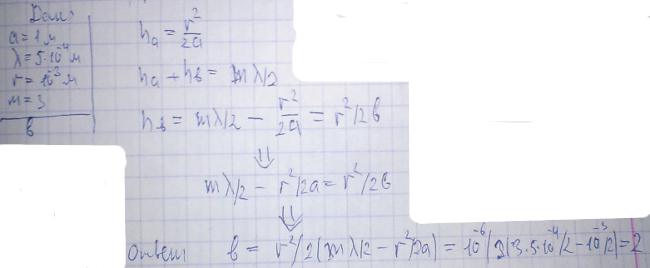 Дано:
a = 1 м
λ = 5·10⁻⁴ м
r = 10⁻³ м
m = 3
в
hₐ = r²/2a
hₐ + hв = mλ/2
hв = mλ/2 − r²/2a = r²/2в
⇓
mλ/2 − r²/2a = r²/2в
⇓
Ответ в = r²/2(mλ/2 − r²/2a) = 10⁻⁶/2(3·5·10⁻⁴/2 − 10⁻³/2) = 2